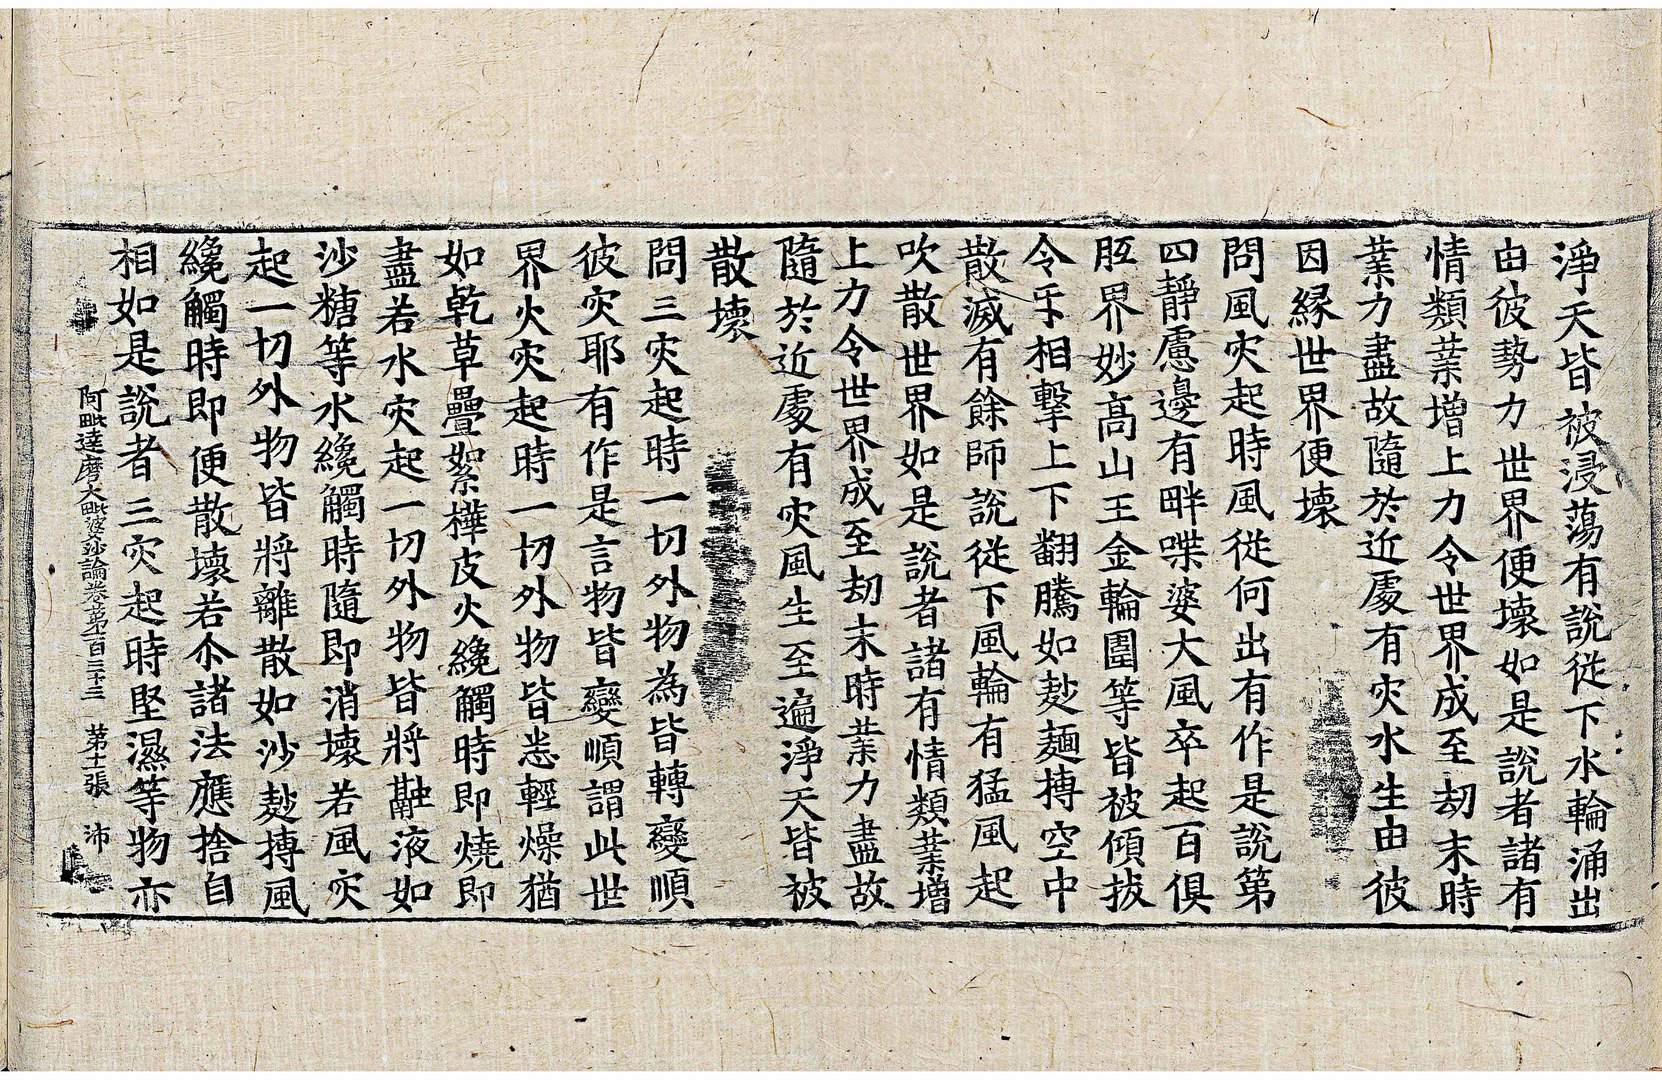 淨天皆被浸蕩有說從下水輪涌出
由彼勢力世界便壞如是說者諸有
情類業增上力令世界成至劫末時
業力盡故隨於近處有灾水生由彼
因緣世界便壞
問風灾起時風從何出有作是說第
四靜慮邊有毗㗫婆大風卒起百俱
胝界妙高山王金輪圍等皆被傾拔
令互相擊上下翻騰如麨麺摶空中
散滅有餘師說從下風輪有猛風起
吹散世界如是說者諸有情類業增
上力令世界成至劫末時業力盡故
隨於近處有灾風生至遍淨天皆被
散壞
問三灾起時一切外物為皆轉變順
彼灾耶有作是言物皆變順謂此世
界火灾起時一切外物皆悉輕燥猶
如乾草疊絮樺皮火纔觸時即燒即
盡若水灾起一切外物皆將融液如
沙糖等水纔觸時隨即消壞若風灾
起一切外物皆將離散如沙麨摶風
纔觸時即便散壞若尒諸法應捨自
阿毗達磨大毗婆沙論卷第一百三十三 第十一張 沛
相如是說者三灾起時堅濕等物亦